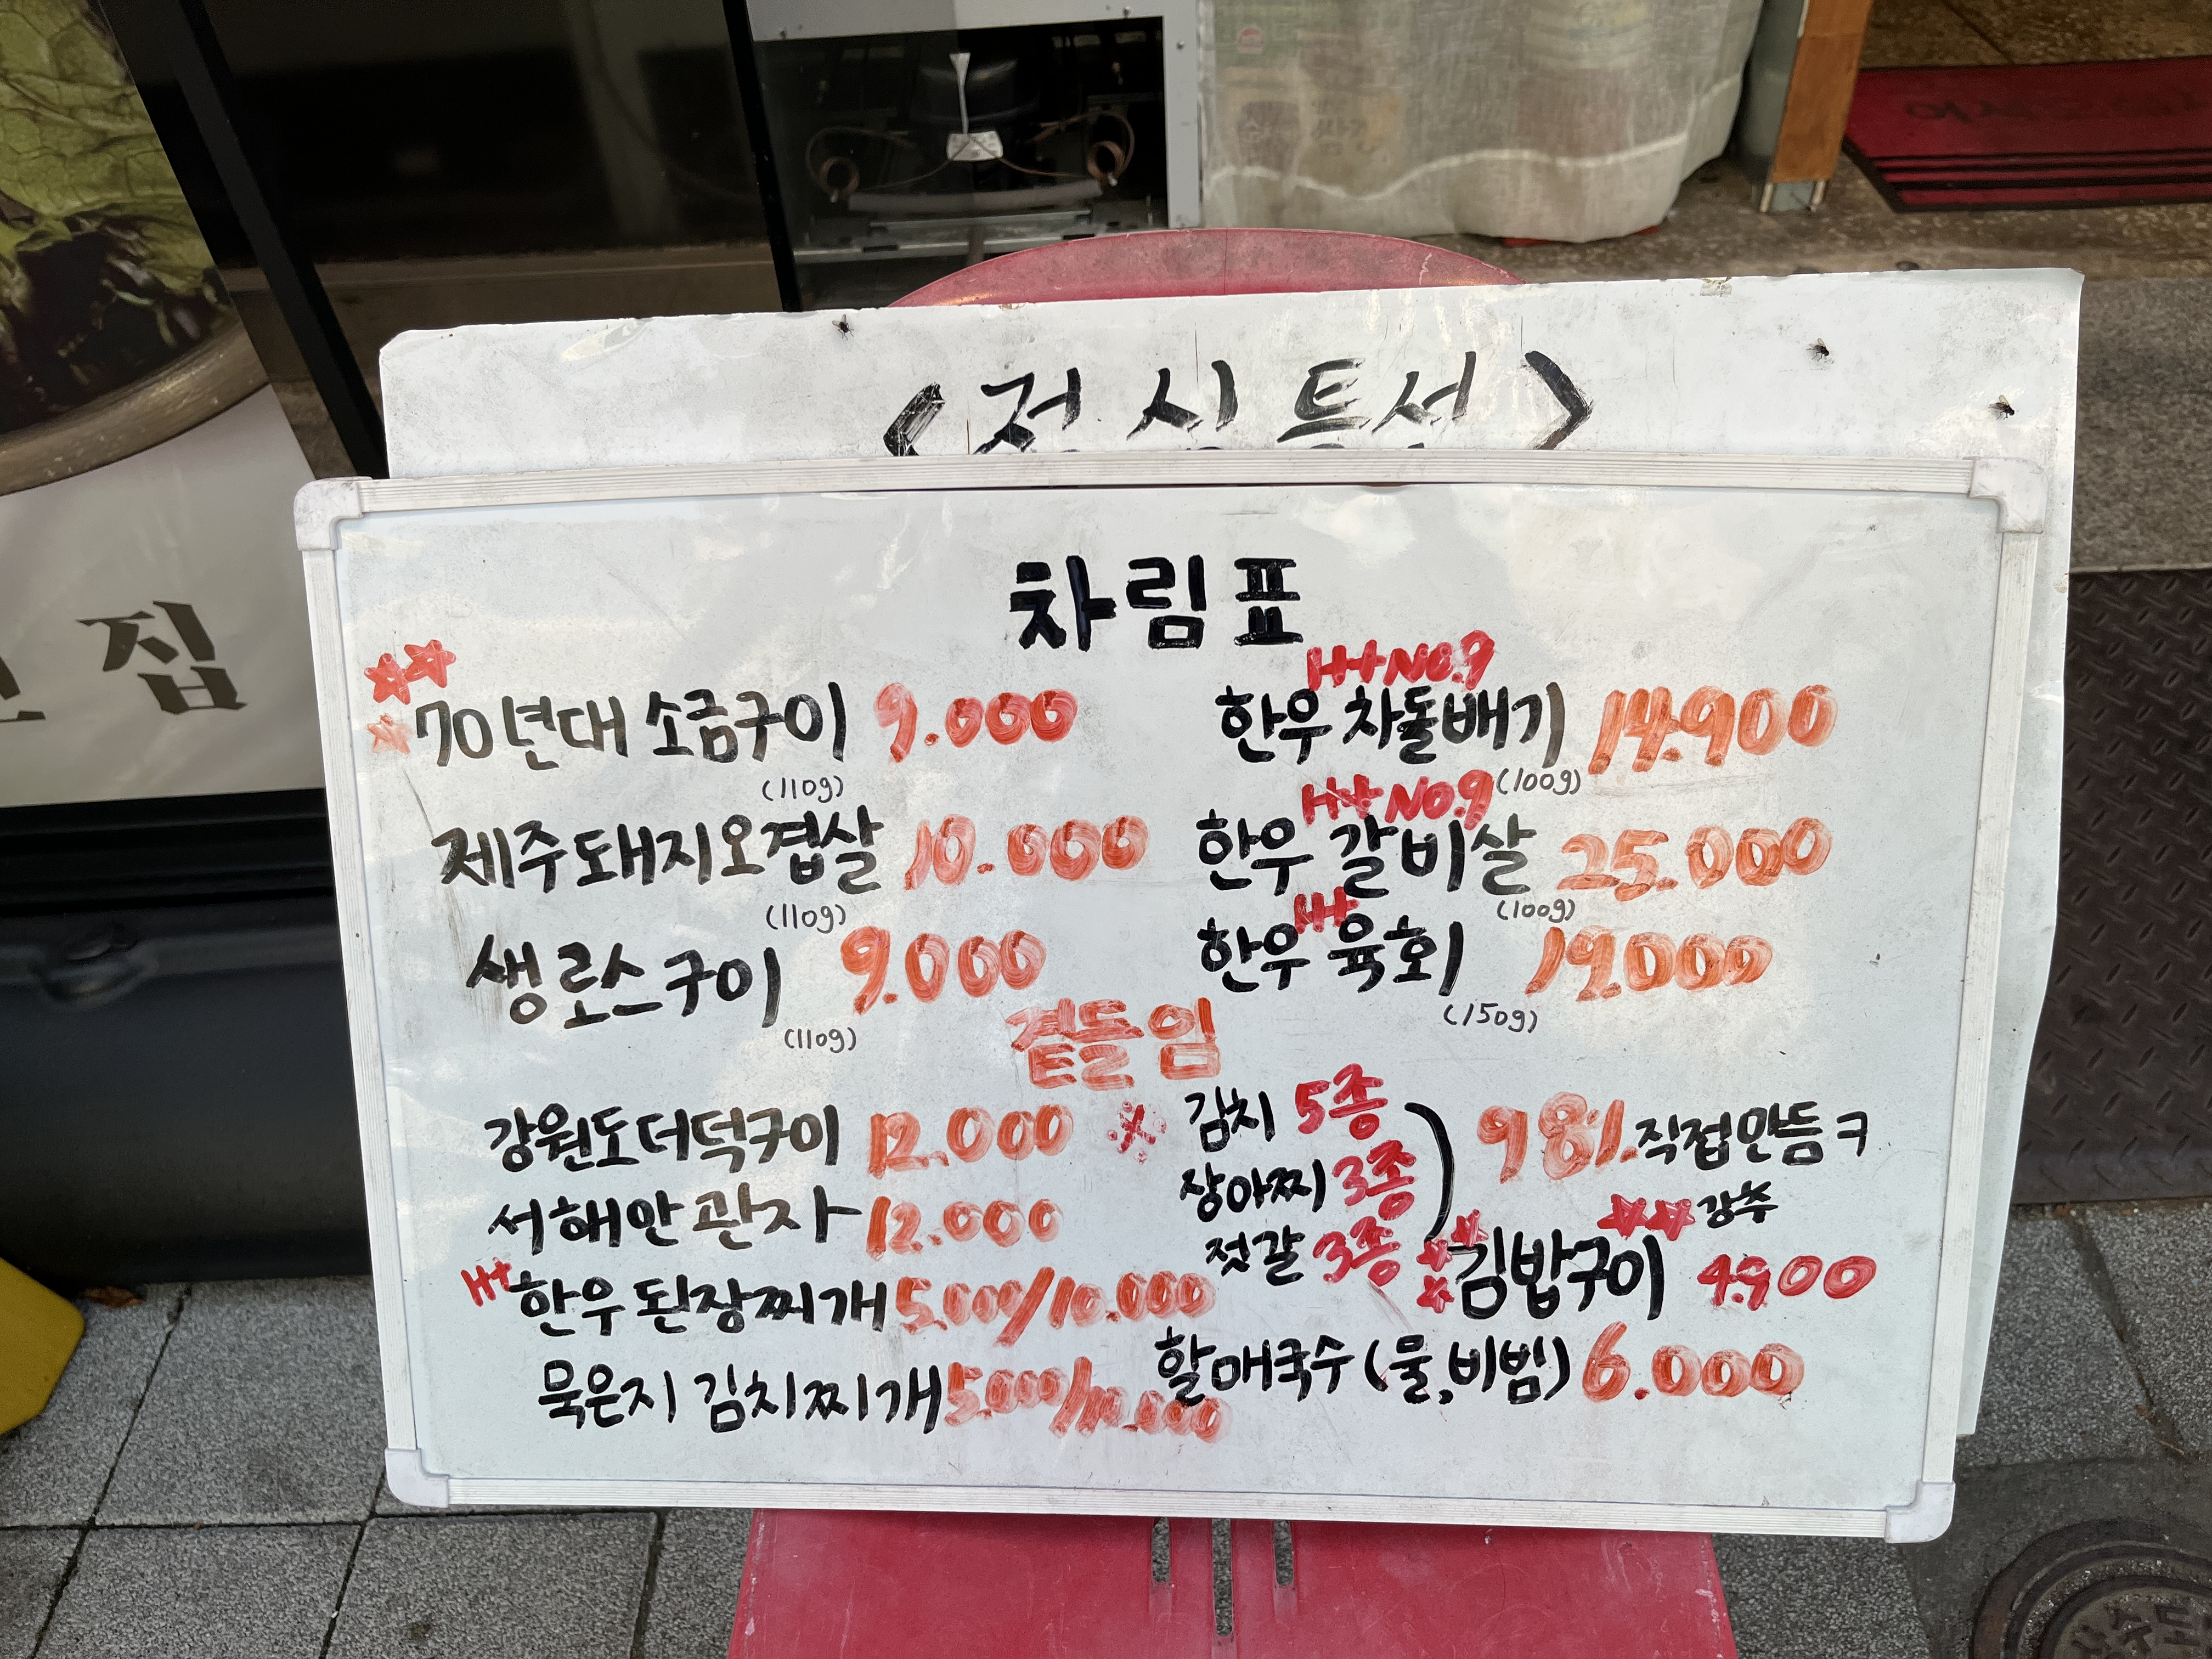 <점심특선>
차림표
70년대 소금구이 9.000
(110g)
제주돼지오겹살 10.000
(110g)
생로스구이 9.000
(110g)
H++No.9
한우 차돌배기 14.900
(100g)
H++No.9
한우 갈비살 25.000
(100g)
H+
한우 육회 19.000
(150g)
곁들임
강원도더덕구이 12.000
서해안 관자 12.000
H+ 한우 된장찌개 5.000/10.000
묵은지 김치찌개 5.000/10.000
※ 김치 5종
장아찌 3종
젓갈 3종
98%.직접만듬ㅋ
강추
김밥구이 4.900
할매국수(물,비빔) 6.000
집